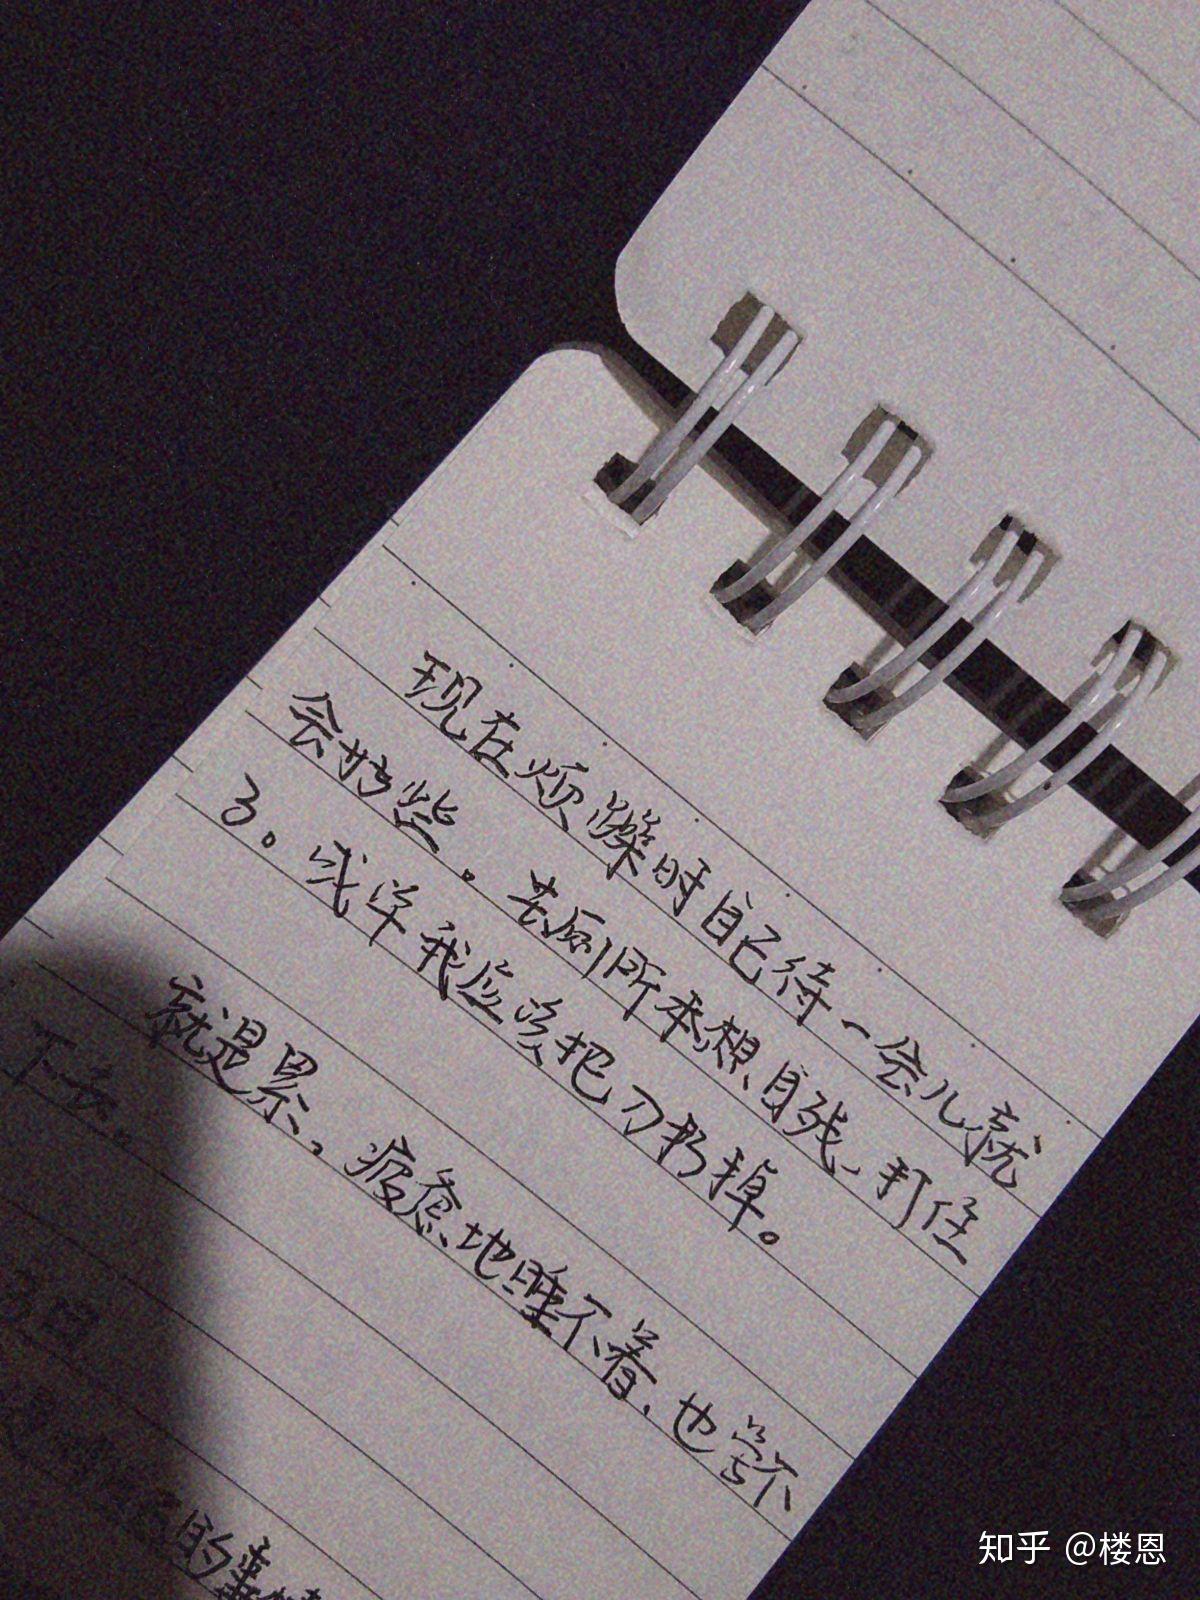 现在烦躁时自己待一会儿就
会好些。去厕所本想自残，打住
了。或许我应该把刀扔掉。
就是累，疲惫地睡不着，也学不
下去。
3日
的事情
知乎 @楼恩